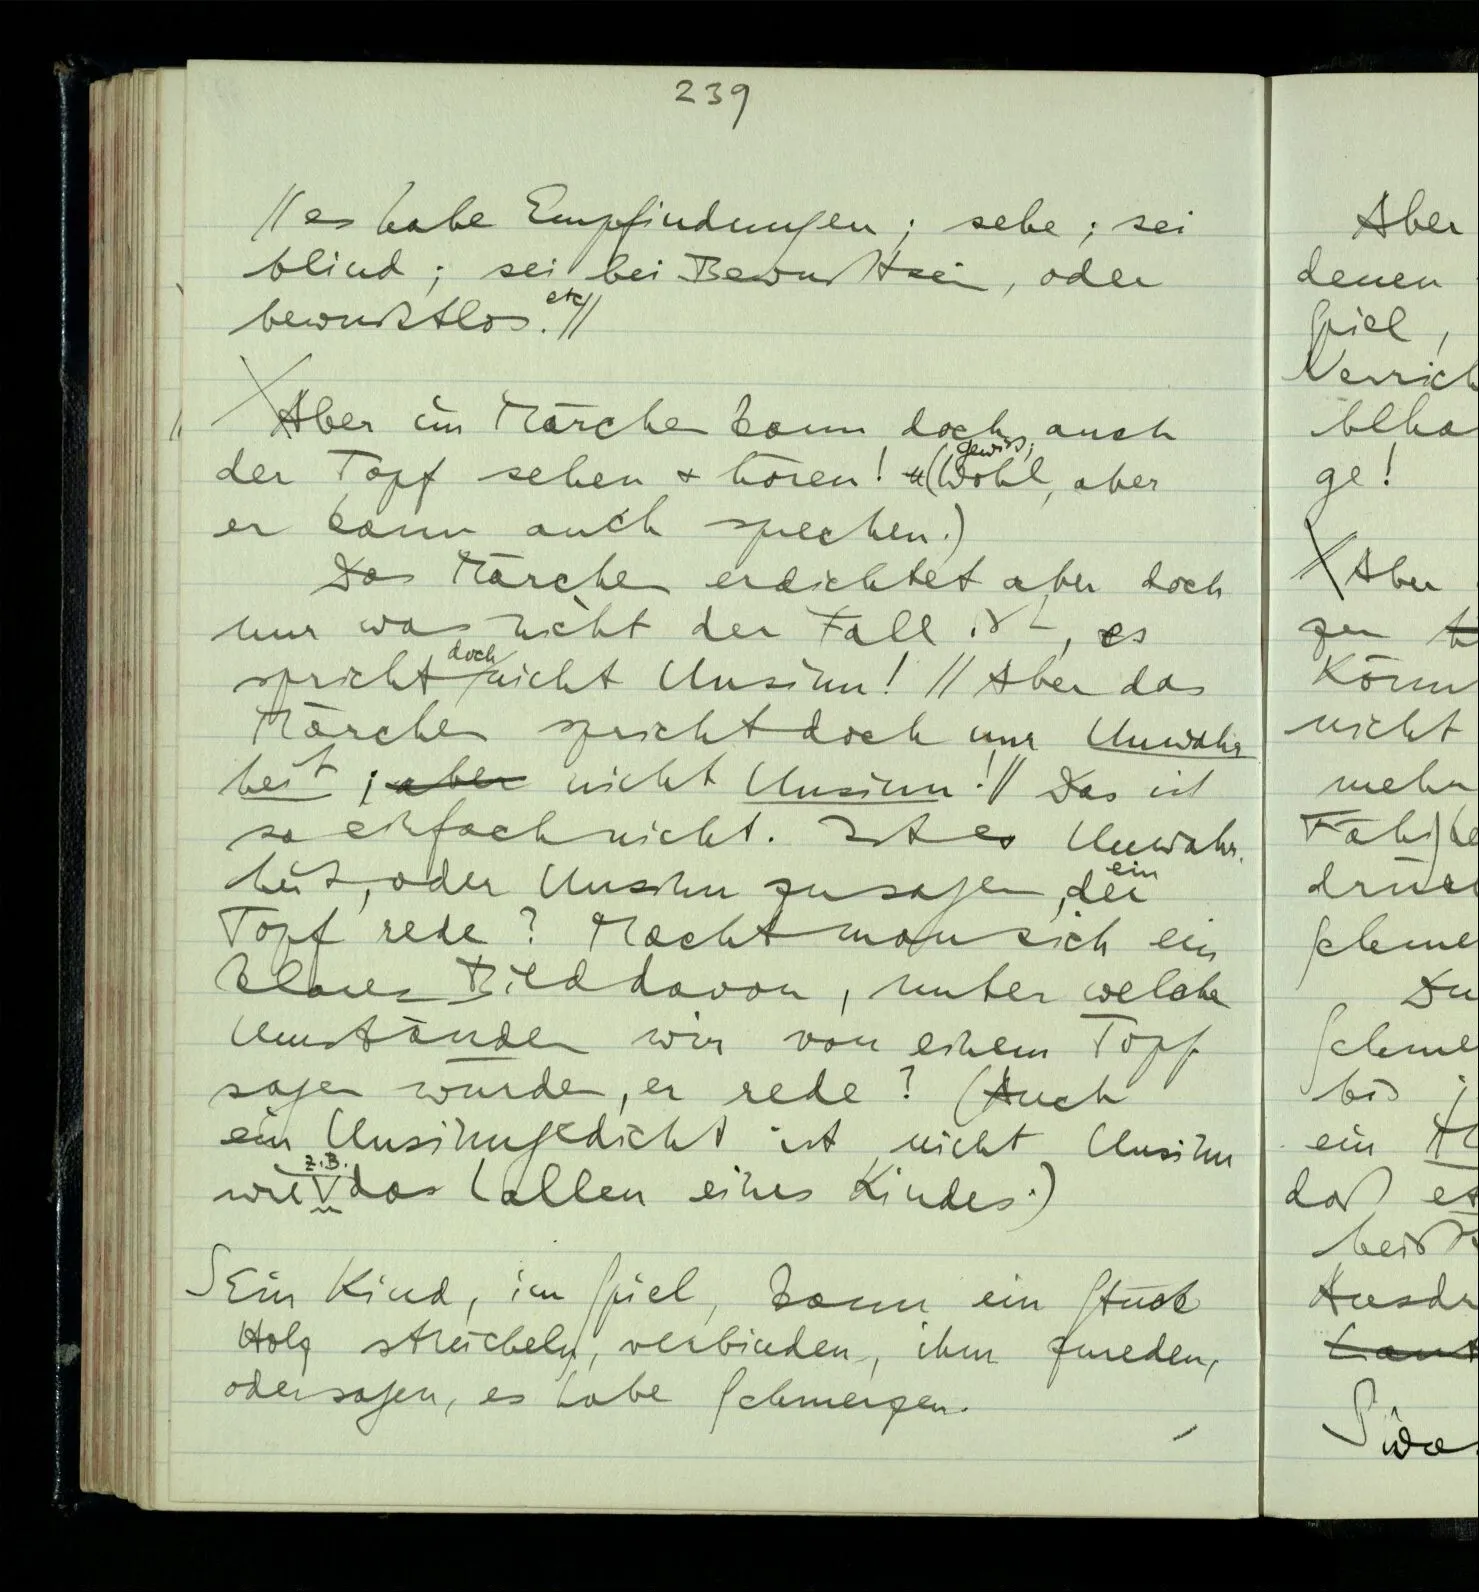 239
// es habe Empfindungen; sehe; sei
blind; sei bei Bewußtsein, oder
bewußtlos. etc //
Aber im Märchen kann doch auch
der Topf sehen & hören! (Gewiss; Wohl, aber
er kann auch sprechen.)
Das Märchen erdichtet aber doch
nur was nicht der Fall ist, es
spricht doch nicht Unsinn! // Aber das
Märchen spricht doch nur Unwahr
heit, aber nicht Unsinn! // Das ist
so einfach nicht. Ist es Unwahr-
heit, oder Unsinn zu sagen, ein der
Topf rede? Macht man sich ein
klares Bild davon, unter welchen
Umständen wir von einem Topf
sagen würden, er rede? (Auch
ein Unsinngedicht ist nicht Unsinn
wie z.B. das Lallen eines Kindes.)
S Ein Kind, im Spiel, kann ein Stück
Holz streicheln, verbinden, ihm zureden,
oder sagen, es habe Schmerzen.
Aber
denen
Spiel,
Verrich
ge!
Aber
zu
Könn
nicht
mehr
Fähi
drück
Schme
Du
Schme
bis
ein
daß es
heißt
Ausdr
S